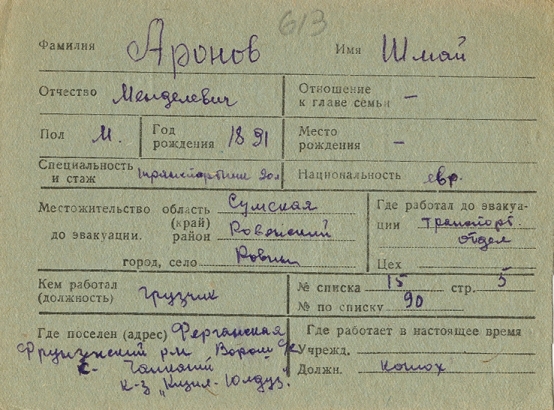 613
Фамилия Аронов Имя Шмай
Отчество Менделевич Отношение к главе семьи —
Пол М. Год рождения 1891 Место рождения —
Специальность и стаж Национальность евр.
Местожительство до эвакуации. область (край) Сумская Где работал до эвакуации транспорт. отдел
район Ровенский
город, село Ровны Цех
Кем работал (должность) грузчик № списка 15 стр. 5
№ по списку 90
Где поселен (адрес) Ферганская Где работает в настоящее время
Фрунзенский р-н Учрежд.
с. Должн. колхоз
к-з „Кизил-Юлдуз".